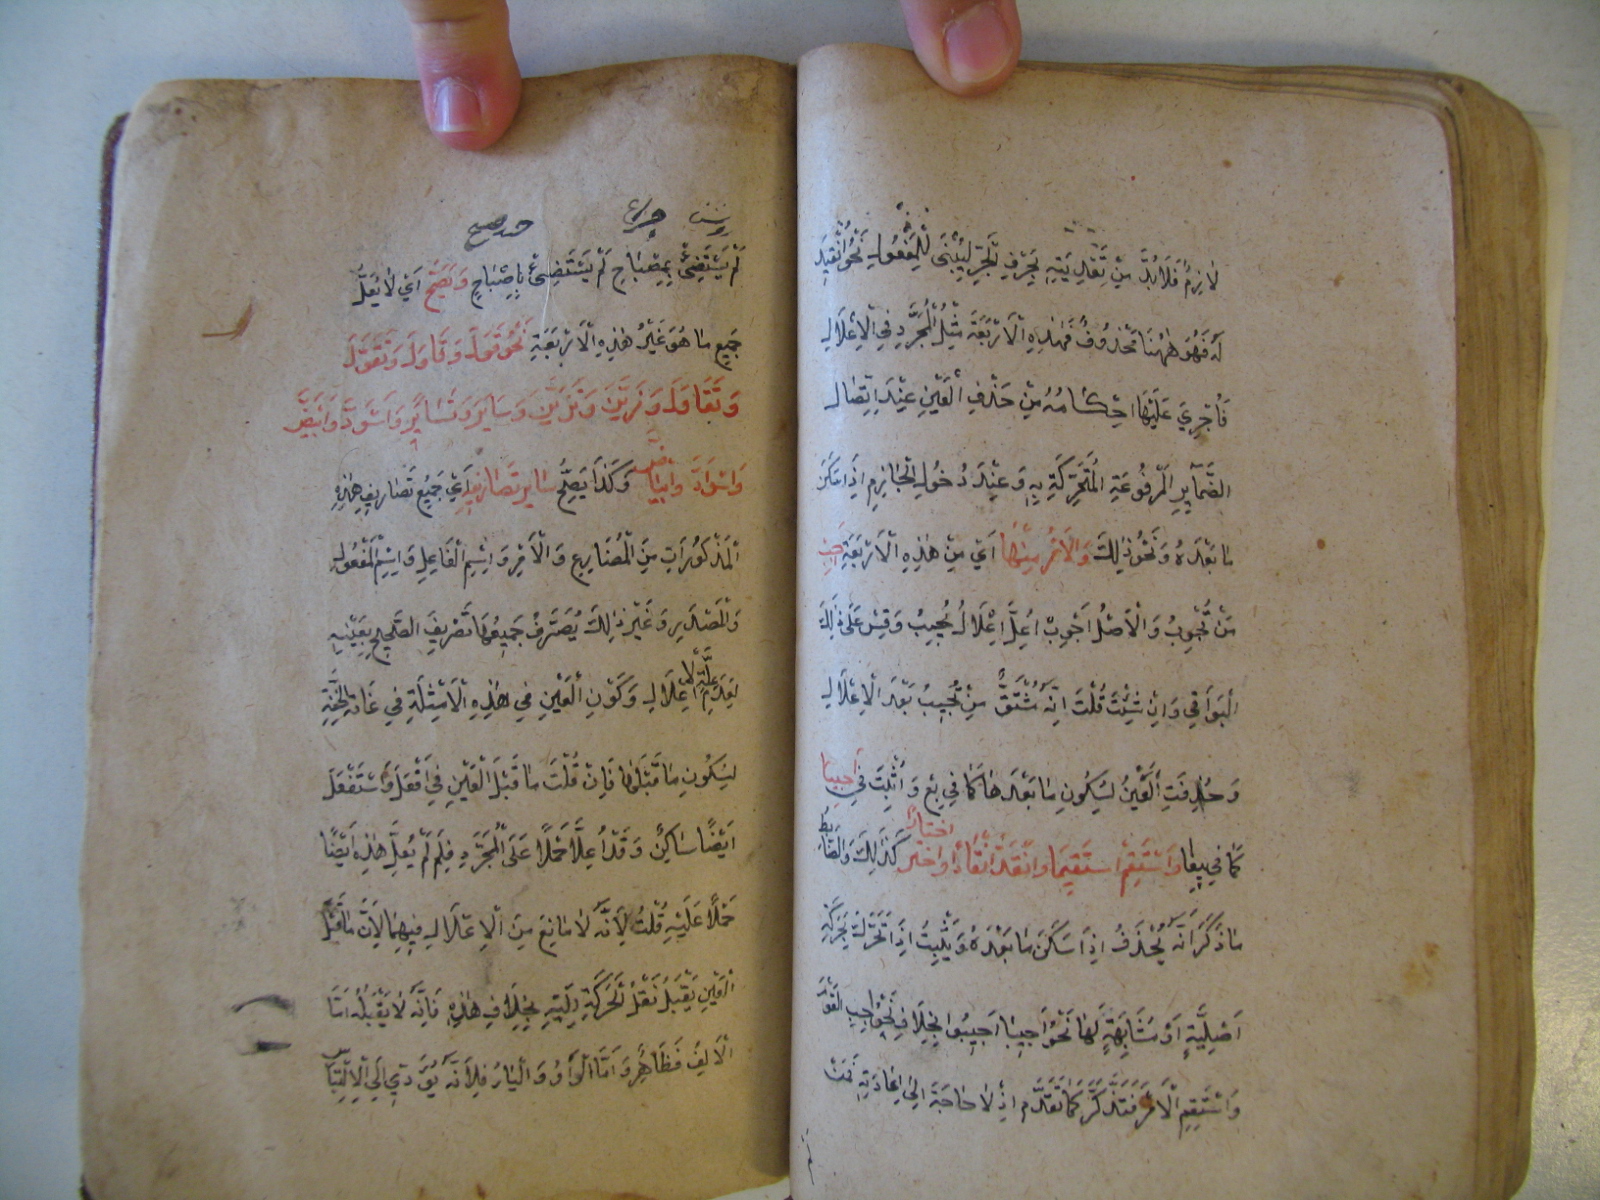 لَازِمٌ فَلَا بُدَّ مِنْ تَعْدِيَتِهِ بِحَرْفِ الْجَرِّ لِيُبْنَى لِلْمَفْعُولِ نَحْوُ اُنْقِيدَ
لَهُ فَهُوَ هٰهُنَا مَحْذُوفٌ فَهٰذِهِ الْاَرْبَعَةُ مِثْلُ الْمُجَرَّدِ فِي الْاِعْلَالِ
فَاُجْرِيَ عَلَيْهَا اَحْكَامُهُ مِنْ حَذْفِ الْعَيْنِ عِنْدَ اتِّصَالِ
الضَّمَآيِرِ الْمَرْفُوعَةِ الْمُتَحَرِّكَةِ بِهِ وَعِنْدَ دُخُولِ الْجَازِمِ اِذَا سَكَنَ
مَا بَعْدَهُ وَنَحْوِ ذٰلِكَ وَالْاَمْرُ مِنْهَا اَيْ مِنْ هٰذِهِ الْاَرْبَعَةِ اَجِبْ
مِنْ تُجْوِبُ وَالْاَصْلُ اَجْوِبْ اُعِلَّ اِعْلَالَ تُجِيبُ وَقِسْ عَلَى ذٰلِكَ
الْبَوَاقِي وَاِنْ شِئْتَ قُلْتَ اِنَّهُ مُشْتَقٌّ مِنْ تُجِيبُ بَعْدَ الْاِعْلَالِ
وَحُذِفَتِ الْعَيْنُ لِسُكُونِ مَا بَعْدَهَا كَمَا فِي بِعْ وَاُثْبِتَ فِي اَجِيبَا
كَمَا فِي بِيعَا وَاسْتَقِمْ اسْتَقِيمَا وَانْقَدْ انْقَادَا وَاخْتَرْ اخْتَارَا كَذٰلِكَ وَالضَّابِطُ
مَا ذُكِرَ اَنَّهُ يُحْذَفُ اِذَا سَكَنَ مَا بَعْدَهُ وَيَثْبُتُ اِذَا تَحَرَّكَ بِحَرَكَةٍ
اَصْلِيَّةٍ اَوْ مُشَابِهَةٍ لَهَا نَحْوُ اَجِيبَا اَجِيبُوا بِخِلَافِ نَحْوِ اَجِبِ الْقَوْمَ
وَاسْتَقِمِ الْاَمْرَ فَتَذَكَّرْ كَمَا تَقَدَّمَ اِذْ لَا حَاجَةَ اِلَى اِعَادَتِهِ فَمَنْ
لَمْ يَسْتَضِئْ بِمِصْبَاحٍ لَمْ يَسْتَضِئْ بِاِصْبَاحٍ وَيَصِحُّ اَيْ لَا يُعَلُّ
جَمِيعُ مَا هُوَ غَيْرُ هٰذِهِ الْاَرْبَعَةِ نَحْوُ قَوَّلَ وَقَاوَلَ وَتَقَوَّلَ
وَتَقَاوَلَ وَزَيَّنَ وَتَزَيَّنَ وَسَايَرَ وَتَسَايَرَ وَاسْوَدَّ وَابْيَضَّ
وَاسْوَادَّ وَابْيَاضَّ وَكَذَا يَصِحُّ سَايِرُ تَصَارِيفِهَا اَيْ جَمِيعُ تَصَارِيفِ هٰذِهِ
الْمَذْكُورَاتِ مِنَ الْمُضَارِعِ وَالْاَمْرِ وَاسْمِ الْفَاعِلِ وَاسْمِ الْمَفْعُولِ
وَالْمَصْدَرِ وَغَيْرِ ذٰلِكَ يُصَرَّفُ جَمِيعُهَا تَصْرِيفَ الصَّحِيحِ بِعَيْنِهِ
لِعَدَمِ عِلَّةِ الْاِعْلَالِ وَكَوْنِ الْعَيْنِ فِي هٰذِهِ الْاَمْثِلَةِ فِي غَايَةِ الْخِفَّةِ
لِسُكُونِ مَا قَبْلَهَا فَاِنْ قُلْتَ مَا قَبْلَ الْعَيْنِ فِي اَفْعَلَ وَاسْتَفْعَلَ
اَيْضًا سَاكِنٌ وَقَدْ اُعِلَّا حَمْلًا عَلَى الْمُجَرَّدِ فَلِمَ لَمْ يُعَلَّ هٰذِهِ اَيْضًا
حَمْلًا عَلَيْهِ قُلْتُ لِاَنَّهُ لَا مَانِعَ مِنَ الْاِعْلَالِ فِيهِمَا لِاَنَّ مَا قَبْلَ
الْعَيْنِ يَقْبَلُ نَقْلَ الْحَرَكَةِ اِلَيْهِ بِخِلَافِ هٰذِهِ فَاِنَّهُ لَا يَقْبَلُهُ اَمَّا
الْاَلِفُ فَظَاهِرٌ وَاَمَّا الْوَاوُ وَالْيَاءُ فَلِاَنَّهُ يُؤَدِّي اِلَى الْاِلْتِبَاسِ